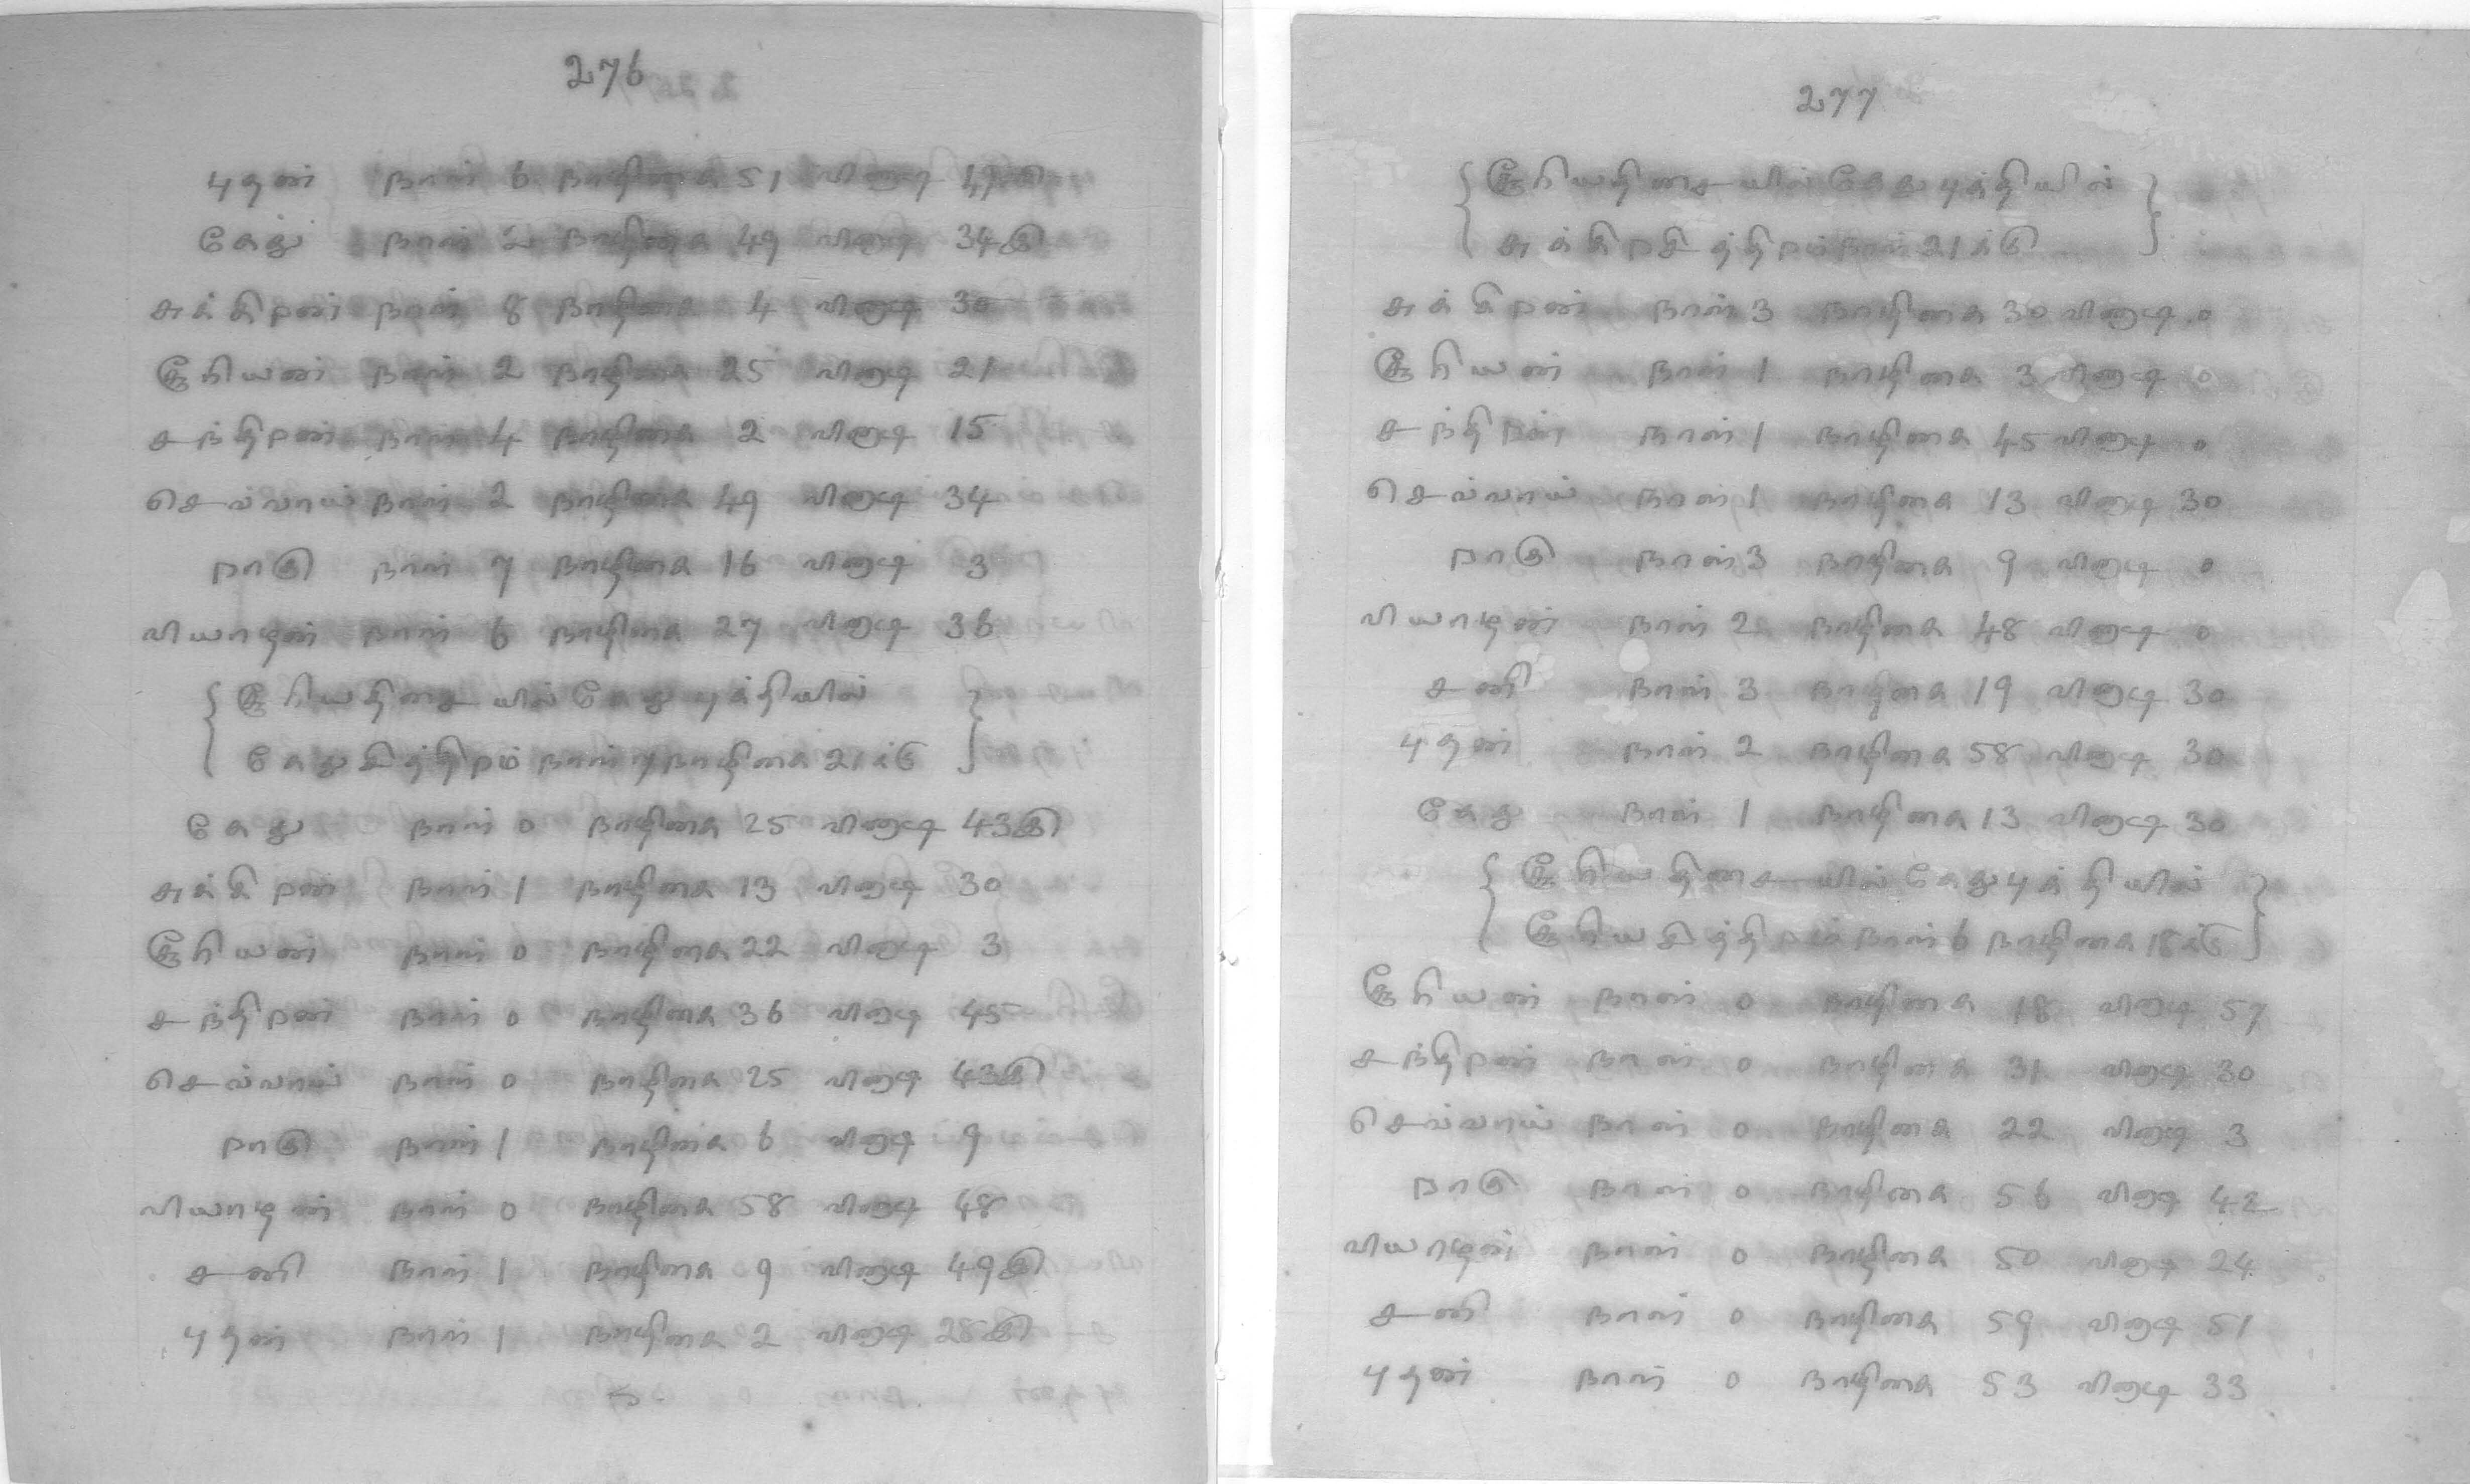 276
புதன் நாள் 6 நாழிகை 51 வினாடி 49இ
கேது நாள் 2 நாழிகை 49 வினாடி 34இ
சுக்கிரன் நாள் 8 நாழிகை 4 வினாடி 30
சூரியன் நாள் 2 நாழிகை 25 வினாடி 21
சந்திரன் நாள் 4 நாழிகை 2 வினாடி 15
செவ்வாய் நாள் 2 நாழிகை 49 வினாடி 34
ராகு நாள் 7 நாழிகை 16 வினாடி 3
வியாழன் நாள் 6 நாழிகை 27 வினாடி 36
{ சூரியதிசையில் கேதுபுத்தியில் }
{ கேதுசித்திரம் நாள் 7 நாழிகை 21க்கு }
கேது நாள் 0 நாழிகை 25 வினாடி 43இ
சுக்கிரன் நாள் 1 நாழிகை 13 வினாடி 30
சூரியன் நாள் 0 நாழிகை 22 வினாடி 3
சந்திரன் நாள் 0 நாழிகை 36 வினாடி 45
செவ்வாய் நாள் 0 நாழிகை 25 வினாடி 43இ
ராகு நாள் 1 நாழிகை 6 வினாடி 9
வியாழன் நாள் 0 நாழிகை 58 வினாடி 48
சனி நாள் 1 நாழிகை 9 வினாடி 49இ
புதன் நாள் 1 நாழிகை 2 வினாடி 28இ
277
{ சூரியதிசையில் கேதுபுத்தியில் }
{ சுக்கிரசித்திரம் நாள் 21க்கு }
சுக்கிரன் நாள் 3 நாழிகை 30 வினாடி 0
சூரியன் நாள் 1 நாழிகை 3 வினாடி 0
சந்திரன் நாள் 1 நாழிகை 45 வினாடி 0
செவ்வாய் நாள் 1 நாழிகை 13 வினாடி 30
ராகு நாள் 3 நாழிகை 9 வினாடி 0
வியாழன் நாள் 2 நாழிகை 48 வினாடி 0
சனி நாள் 3 நாழிகை 19 வினாடி 30
புதன் நாள் 2 நாழிகை 58 வினாடி 30
கேது நாள் 1 நாழிகை 13 வினாடி 30
{ சூரியதிசையில் கேதுபுத்தியில் }
{ சூரியசித்திரம் நாள் 6 நாழிகை 18க்கு }
சூரியன் நாள் 0 நாழிகை 18 வினாடி 57
சந்திரன் நாள் 0 நாழிகை 31 வினாடி 30
செவ்வாய் நாள் 0 நாழிகை 22 வினாடி 3
ராகு நாள் 0 நாழிகை 56 வினாடி 42
வியாழன் நாள் 0 நாழிகை 50 வினாடி 24
சனி நாள் 0 நாழிகை 59 வினாடி 51
புதன் நாள் 0 நாழிகை 53 வினாடி 33